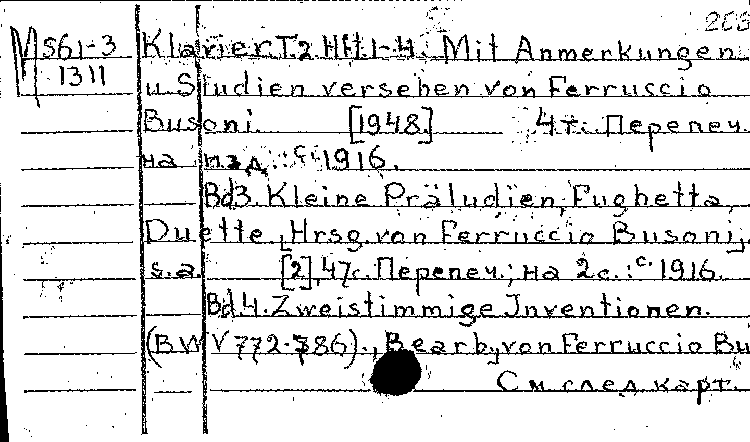 208
М S61-3 Klavier T.2 Hft.1-4. Mit Anmerkungen
1311 u. Studien versehen von Ferruccio
Busoni. [1948.] 4т. Перепеч.
на изд.: c. 1916.
Bd3. Kleine Präludien, Fughetta,
Duette, Hrsg. von Ferruccio Busoni,
s.a. [2], 47c. Перепеч.; на 2с.: c. 1916.
Bd4. Zweistimmige Inventionen.
(BWV 772-786)., Bearb. von Ferruccio Bu
См след карт.